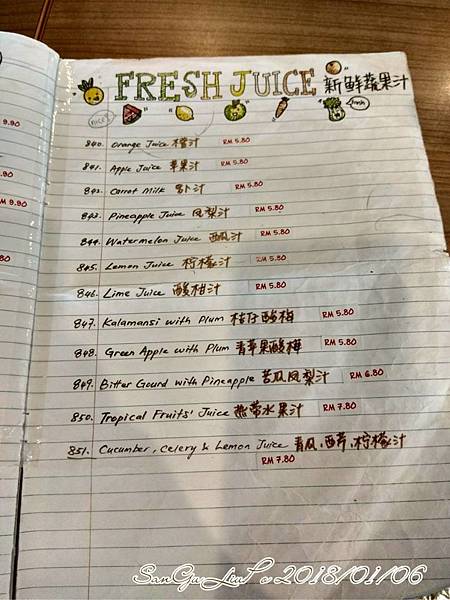 FRESH JUICE 新鲜蔬果汁
NICE!!
Fresh
9.90
RM 9.90
840. Orange Juice 橙汁 RM 5.80
841. Apple Juice 苹果汁 RM 5.80
842. Carrot Milk 萝卜汁 RM 5.80
843. Pineapple Juice 凤梨汁 RM 5.80
844. Watermelon Juice 西瓜汁 RM 5.80
845. Lemon Juice 柠檬汁 RM 5.80
846. Lime Juice 酸柑汁 RM 5.80
847. Kalamansi with Plum 桔仔酸梅 RM 5.80
848. Green Apple with Plum 青苹果酸梅 RM 5.80
849. Bitter Gourd with Pineapple 苦瓜凤梨汁 RM 6.80
850. Tropical Fruits' Juice 热带水果汁 RM 7.80
851. Cucumber, Celery & Lemon Juice 青瓜、西芹、柠檬汁
RM 7.80
2018/01/06